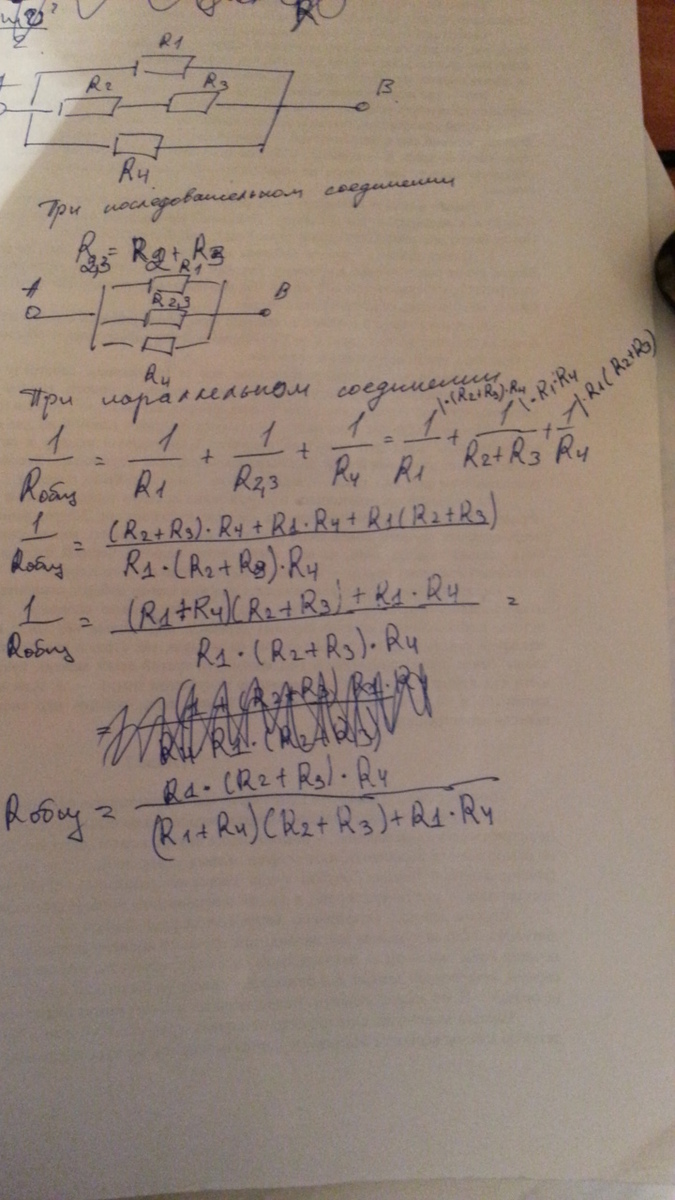 2
R1
R2 R3
B
R4
При последовательном соединении
R2,3 = R2 + R3
R1
A B
R2,3
R4
При параллельном соединении
1/Rобщ = 1/R1 + 1/R2,3 + 1/R4 = 1/R1 |·(R2+R3)·R4 + 1/R2+R3 |·R1·R4 + 1/R4 |·R1(R2+R3)
1/Rобщ = (R2+R3)·R4+R1·R4+R1(R2+R3)/R1·(R2+R3)·R4
1/Rобщ = (R1+R4)(R2+R3)+R1·R4/R1·(R2+R3)·R4 =
=
Rобщ = R1·(R2+R3)·R4/(R1+R4)(R2+R3)+R1·R4